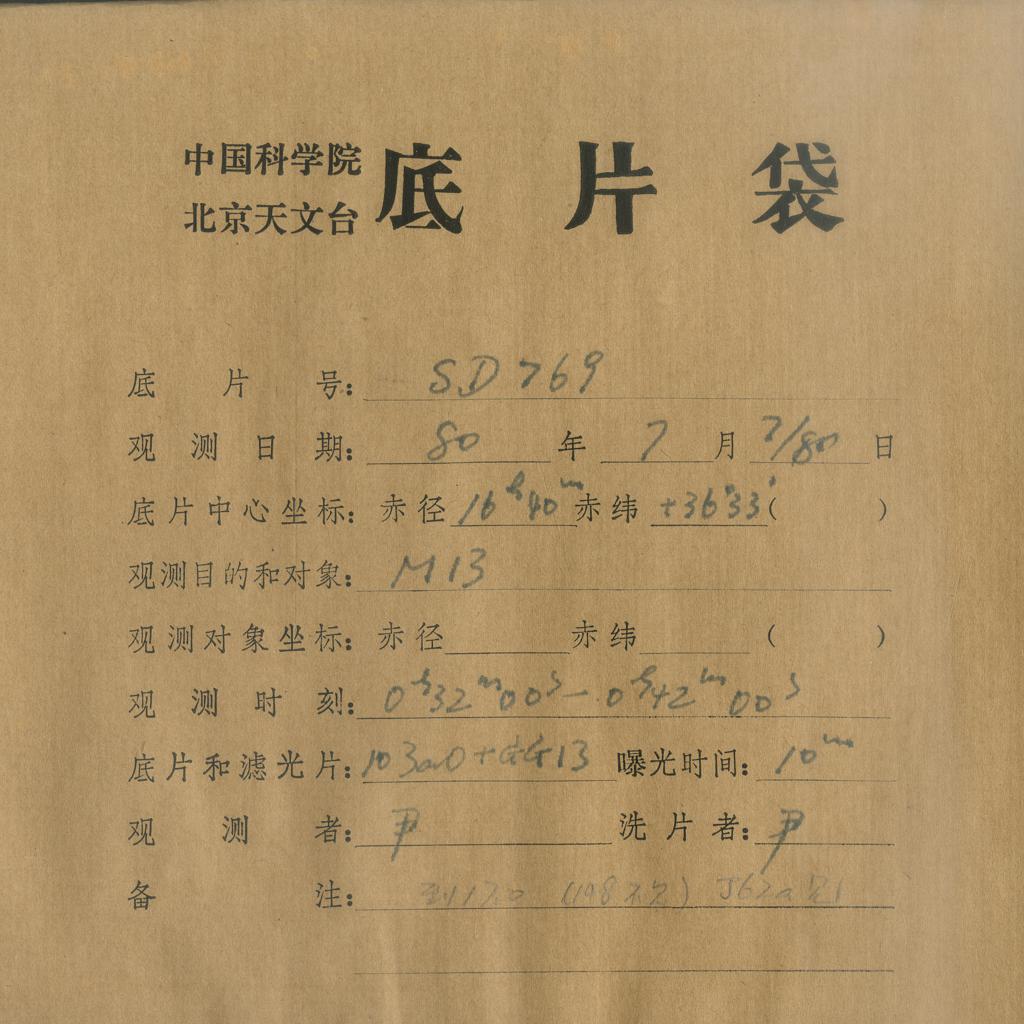 中国科学院
北京天文台 底片袋
底片号: SD769
观测日期: 80 年 7 月 7/80 日
底片中心坐标: 赤径 16ʰ40ᵐ 赤纬 +36°33′ ( )
观测目的和对象: M13
观测对象坐标: 赤径 赤纬 ( )
观测时刻: 0ʰ32ᵐ00ˢ — 0ʰ42ᵐ00ˢ
底片和滤光片: 103aO+GG13 曝光时间: 10ᵐ
观测者: 尹 洗片者: 尹
备注: